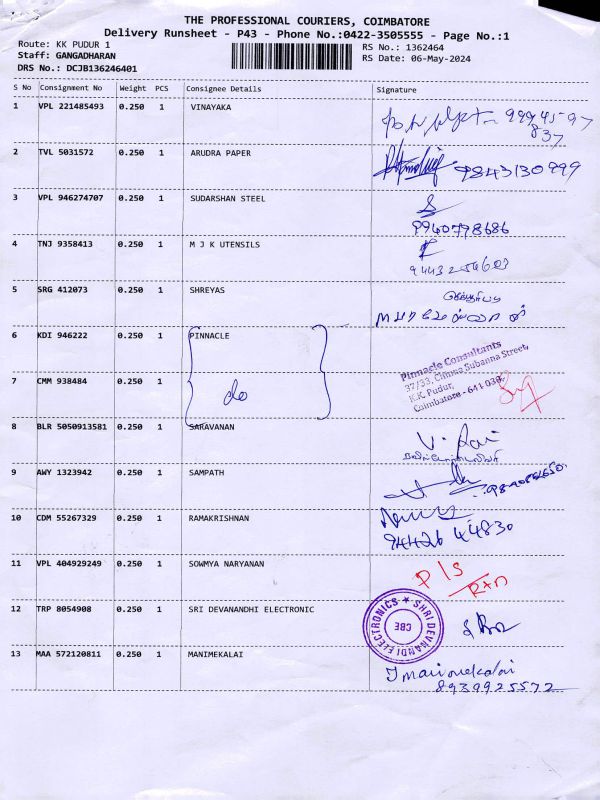 THE PROFESSIONAL COURIERS, COIMBATORE
Delivery Runsheet - P43 - Phone No.:0422-3505555 - Page No.:1
Route: KK PUDUR 1
Staff: GANGADHARAN
DRS No.: DCJB136246401
RS No.: 1362464
RS Date: 06-May-2024
S No Consignment No Weight PCS Consignee Details Signature
1 VPL 221485493 0.250 1 VINAYAKA
837
2 TVL 5031572 0.250 1 ARUDRA PAPER 9843130999
3 VPL 946274707 0.250 1 SUDARSHAN STEEL
9940798686
4 TNJ 9358413 0.250 1 M J K UTENSILS
5 SRG 412073 0.250 1 SHREYAS
6 KDI 946222 0.250 1 PINNACLE
Pinnacle Consultants
37/33, Chinna Subanna Street,
K.K. Pudur,
Coimbatore - 641 038.
7 CMM 938484 0.250 1 do
8 BLR 5050913581 0.250 1 SARAVANAN
9 AWY 1323942 0.250 1 SAMPATH
10 CDM 55267329 0.250 1 RAMAKRISHNAN
94426 44830
11 VPL 404929249 0.250 1 SOWMYA NARYANAN P/S
12 TRP 8054908 0.250 1 SRI DEVANANDHI ELECTRONIC
SHRI DEVNANDI ELECTRONICS ★
CBE
13 MAA 572120811 0.250 1 MANIMEKALAI
8939925572